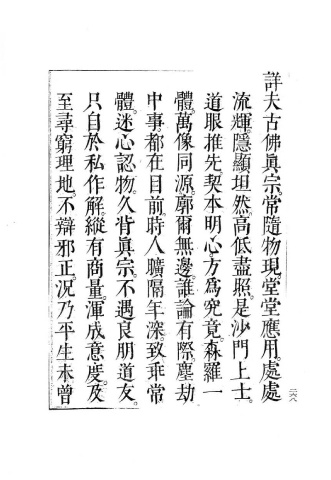 詳夫古佛眞宗。常隨物現。堂堂應用。處處
流輝。隱顯坦然。高低盡照。是沙門上士。
道眼推先。契本明心。方爲究竟。森羅一
體。萬像同源。廓爾無邊。誰論有際。塵劫
中事。都在目前。時人曠隔年深。致乖常
體。迷心認物。久背眞宗。不遇良朋道友。
只自於私作解。縱有商量。渾成意度。及
至尋窮理地。不辯邪正。況乃平生未曾
二六八